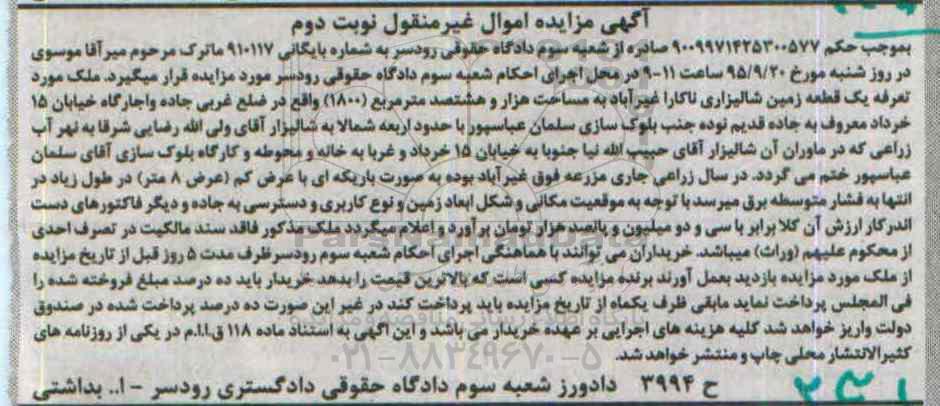 آگهی مزایده اموال غیرمنقول نوبت دوم
بموجب حکم ۹۰۰۹۹۷۱۴۲۵۳۰۰۵۷۷ صادره از شعبه سوم دادگاه حقوقی رودسر به شماره بایگانی ۹۱۰۱۱۷ ماترک مرحوم میرآقا موسوی
در روز شنبه مورخ ۹۵/۹/۲۰ ساعت ۱۱-۹ در محل اجرای احکام شعبه سوم دادگاه حقوقی رودسر مورد مزایده قرار میگیرد. ملک مورد
تعرفه یک قطعه زمین شالیزاری ناکارا غیرآباد به مساحت هزار و هشتصد مترمربع (۱۸۰۰) واقع در ضلع غربی جاده واجارگاه خیابان ۱۵
خرداد معروف به جاده قدیم نوده جنب بلوک سازی سلمان عباسپور با حدود اربعه شمالا به شالیزار آقای ولی الله رضایی شرقا به نهر آب
زراعی که در ماوران آن شالیزار آقای حبیب الله نیا جنوبا به خیابان ۱۵ خرداد و غربا به خانه و محوطه و کارگاه بلوک سازی آقای سلمان
عباسپور ختم می گردد. در سال زراعی جاری مزرعه فوق غیرآباد بوده به صورت باریکه ای با عرض کم (عرض ۸ متر) در طول زیاد در
انتها به فشار متوسطه برق میرسد با توجه به موقعیت مکانی و شکل ابعاد زمین و نوع کاربری و دسترسی به جاده و دیگر فاکتورهای دست
اندرکار ارزش آن کلا برابر با سی و دو میلیون و پانصد هزار تومان برآورد و اعلام میگردد ملک مذکور فاقد سند مالکیت در تصرف احدی
از محکوم علیهم (وراث) میباشد. خریداران می توانند با هماهنگی اجرای احکام شعبه سوم رودسر ظرف مدت ۵ روز قبل از تاریخ مزایده
از ملک مورد مزایده بازدید بعمل آورند برنده مزایده کسی است که بالاترین قیمت را بدهد خریدار باید ده درصد مبلغ فروخته شده را
فی المجلس پرداخت نماید مابقی ظرف یکماه از تاریخ مزایده باید پرداخت کند در غیر این صورت ده درصد پرداخت شده در صندوق
دولت واریز خواهد شد کلیه هزینه های اجرایی بر عهده خریدار می باشد و این آگهی به استناد ماده ۱۱۸ ق.ا.م در یکی از روزنامه های
کثیرالانتشار محلی چاپ و منتشر خواهد شد.
ح ۳۹۹۴ دادورز شعبه سوم دادگاه حقوقی دادگستری رودسر - ا.. بداشتی
۰۲۱-۸۸۳۴۹۶۷۰-۵